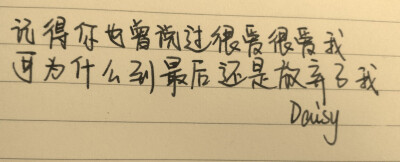 记得你也曾说过很爱很爱我
可为什么到最后还是放弃了我
Daisy